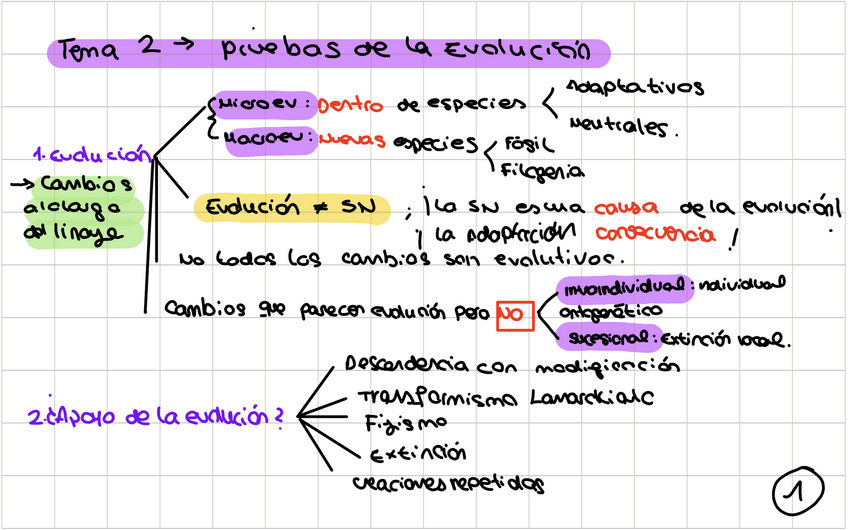 Tema 2 → pruebas de la Evolución
Microev: Dentro de especies
Adaptativos
Neutrales.
Macroev: Nuevas especies
Fósil
Filogenia
1. Evolución
→ Cambios
a lo largo
del linaje
Evolución ≠ SN ; ¡La SN es una causa de la evolución!
¡ La adaptación consecuencia !
No todos los cambios son evolutivos.
Cambios que parecen evolución pero NO
intraindividual: individual
ontogenético
sucesional: Extinción local.
2. ¿Apoyo de la evolución?
Descendencia con modificación
Transformismo Lamarckiano
Fijismo
Extinción
creaciones repetidas
1